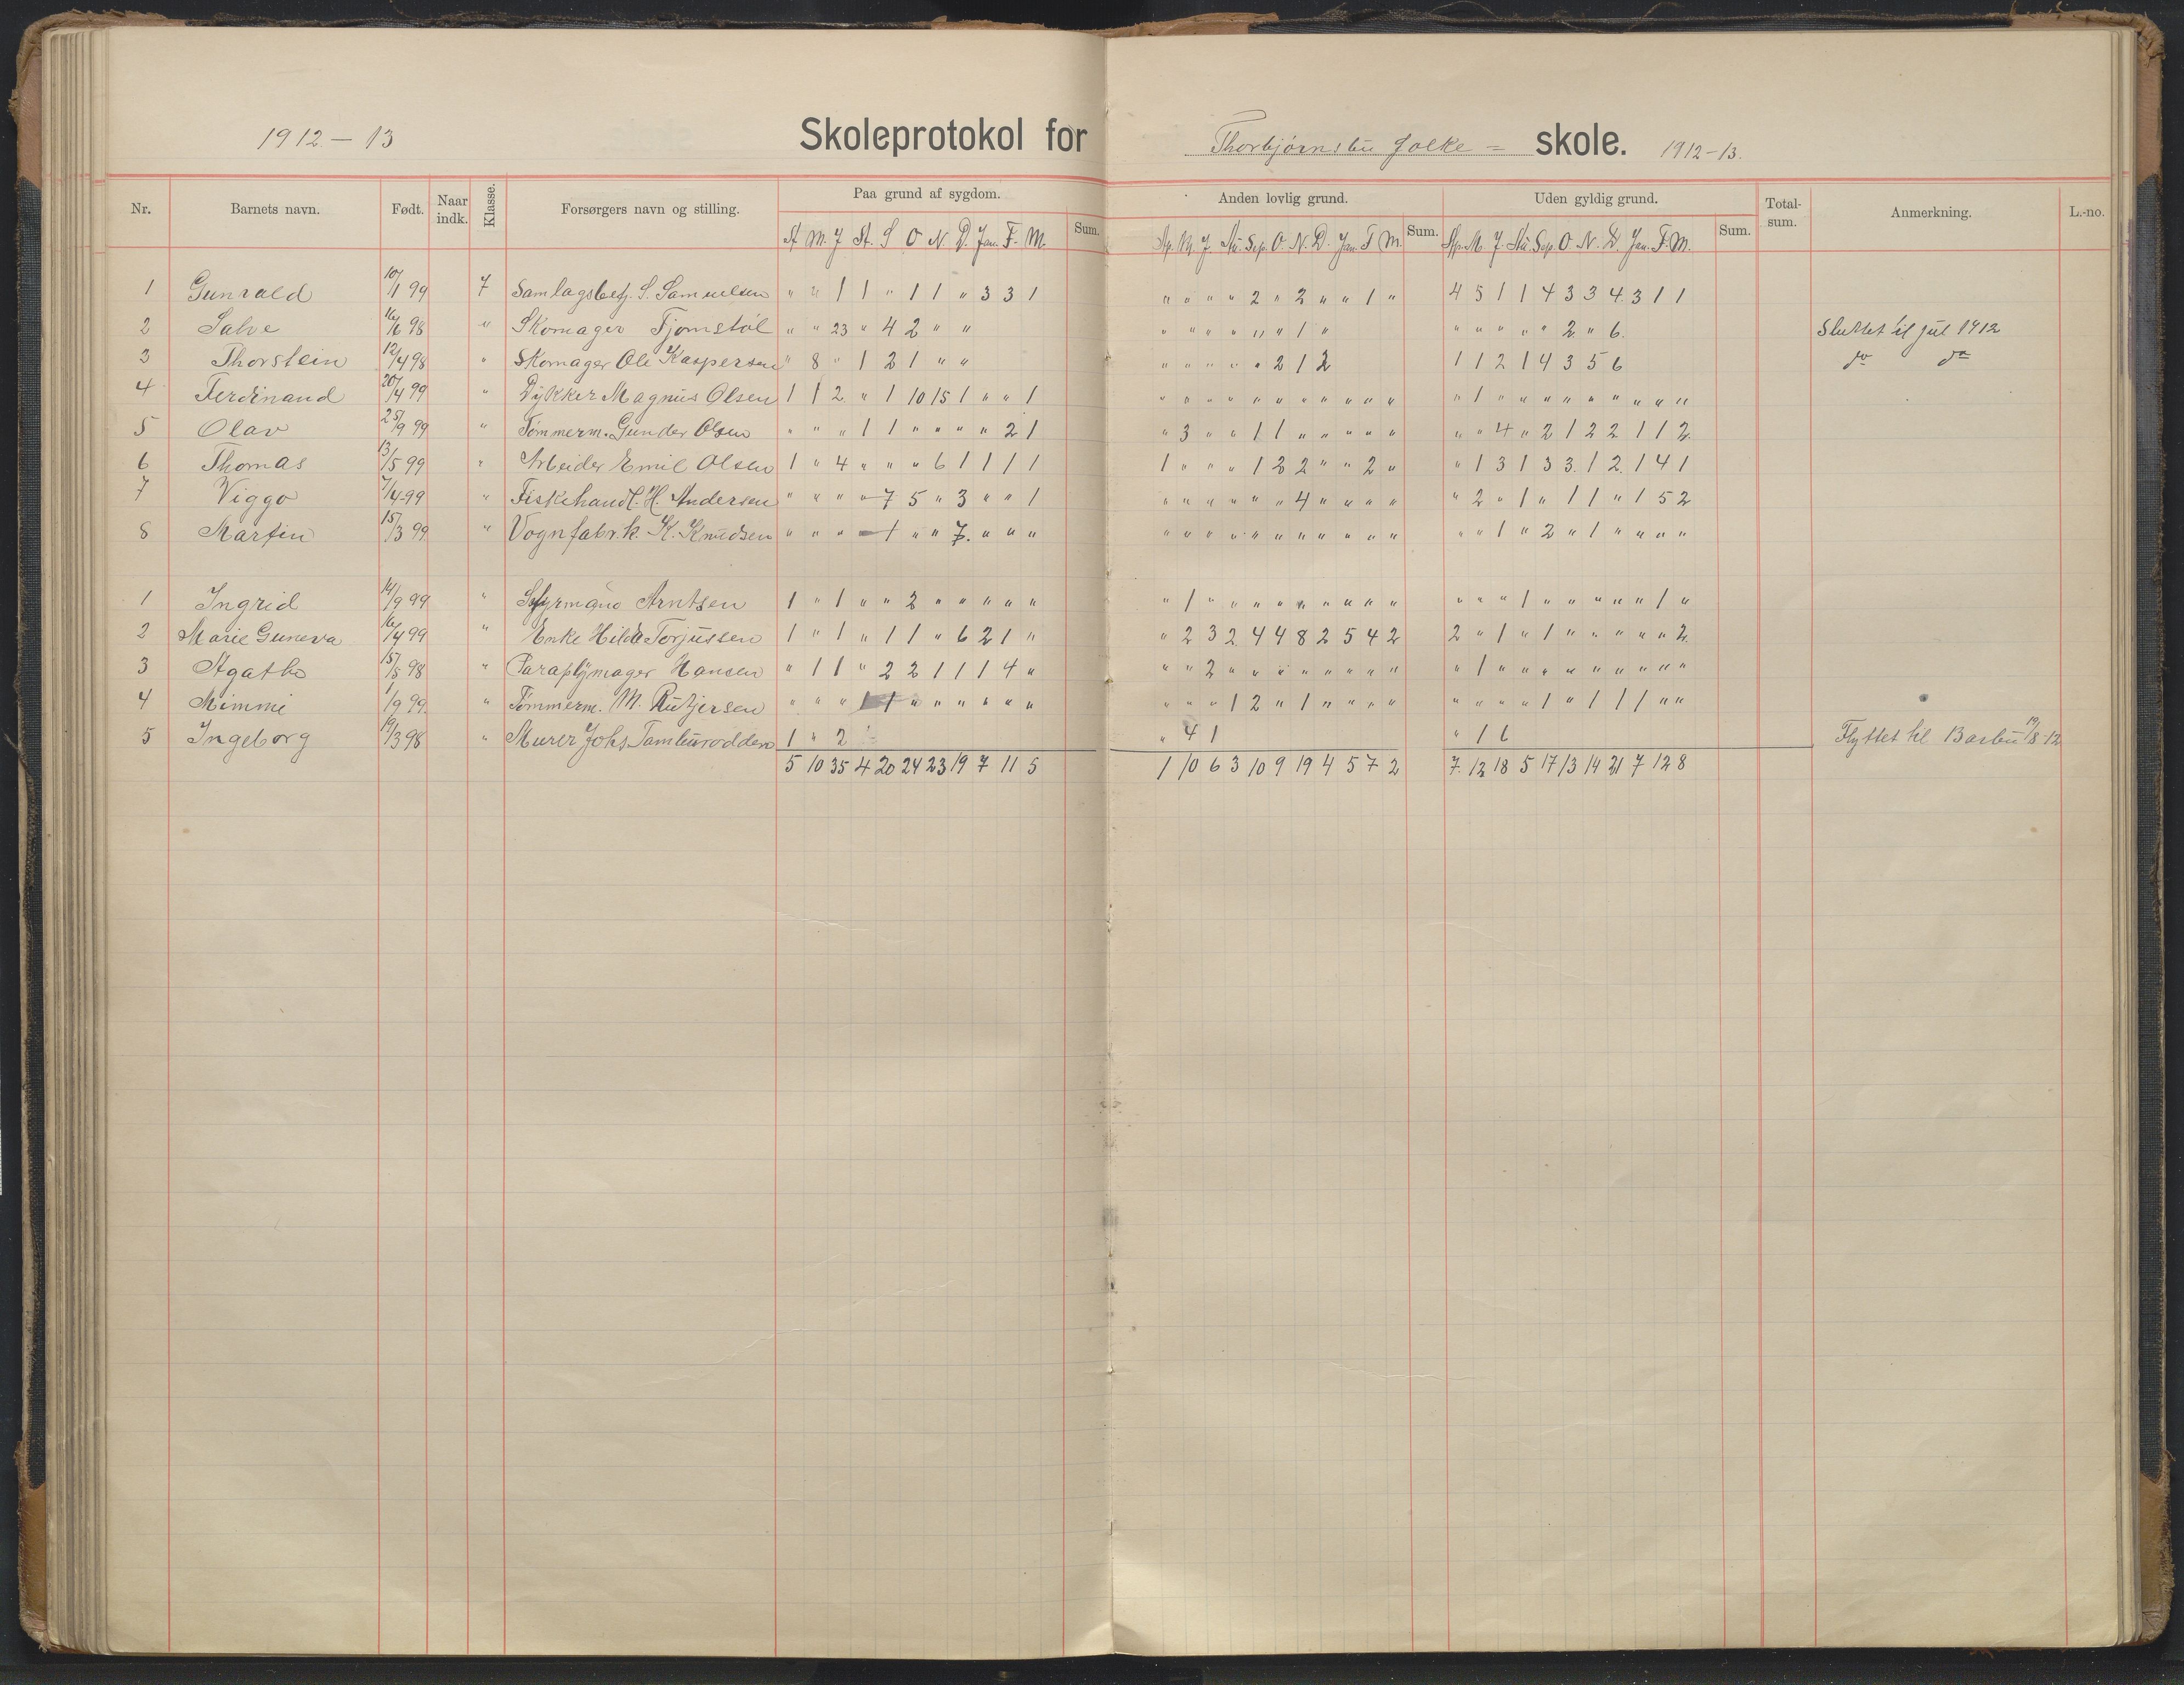 1912 – 13 Skoleprotokol for Thorbjørnsbu folke = skole. 1912-13.
Nr. Barnets navn. Født. Naar indk. Klasse. Forsørgers navn og stilling. Paa grund af sygdom. Sum. Anden lovlig grund. Sum. Uden gyldig grund. Sum. Total-sum. Anmerkning. L.-no.
A M. J A. S O N D. Jan. F. M. Ap. M. J. Au. Sep. O. N. D. Jan. F M. Ap. M. J. Au. Sep. O. N. D. Jan. F. M.
1 Gunvald 10/1 99 7 Samlagsbetj. S. Samuelsen " " 1 1 " 1 1 " 3 3 1 " " " " 2 " 2 " " 1 " 4 5 1 1 4 3 3 4 3 1 1
2 Salve 16/6 98 " Skomager Fjomstøl " " 23 " 4 2 " " " " " " " " 1 " " " " " " 2 " 6 Sluttet til jul 1912
3 Thorstein 12/4 98 " Skomager Ole Kaspersen " 8 " 1 2 1 " " " " " " " 2 1 2 1 1 2 1 4 3 5 6 do do
4 Ferdinand 20/4 99 " Dykker Magnus Olsen 1 1 2 " 1 10 15 1 " " 1 " " " " " " " " " " " " 1 " " " " " " " " "
5 Olav 25/9 99 " Tømmerm. Gunder Olsen " " " 1 1 " " " " 2 1 " 3 " " 1 1 " " " " " " " 4 " 2 1 2 2 1 1 2
6 Thomas 13/5 99 " Arbeider Emil Olsen 1 " 4 " " " 6 1 1 1 1 1 " " " 1 2 2 " " 2 " " 1 3 1 3 3 1 2 1 4 1
7 Viggo 7/4 99 " Fiskehandl. H. Andersen " " " " 7 5 " 3 " " 1 " " " " " " 4 " " " " " 2 " 1 " 1 1 " 1 5 2
8 Martin 15/3 99 " Vognfabr.k. K. Knudsen " " " – 1 " " 7. " " " " " " " " " " " " " " " " 1 " 2 " 1 " " " "
1 Ingrid 14/9 99 " Styrmand Arntsen 1 " 1 " " 2 " " " " " " 1 " " " " " " " " " " " " 1 " " " " " 1 "
2 Marie Guneva 16/4 99 " Enke Hilda Torjussen 1 " 1 " 1 1 " 6 2 1 " " 2 3 2 4 4 8 2 5 4 2 2 " 1 " 1 " " " " " 2
3 Agathe 15/5 98 " Paraplymager Hansen " 1 1 " 2 2 1 1 1 4 " " " 2 " " " " " " " " " 1 " " " " " " " " "
4 Mimmi 1/9 99. " Tømmerm. M. Rutjersen " " " 1 1 " " " " " " " " " 1 2 " 1 " " " " " " " " 1 " 1 1 1 " "
5 Ingeborg 19/3 98 " Murer Johs. Tamburodden 1 " 2 " 4 1 " 1 6 Flyttet til Barbu 19/8-12
5 10 35 4 20 24 23 19 7 11 5 1 10 6 3 10 9 19 4 5 7 2 7. 12 18 5 17 13 14 21 7 12 8